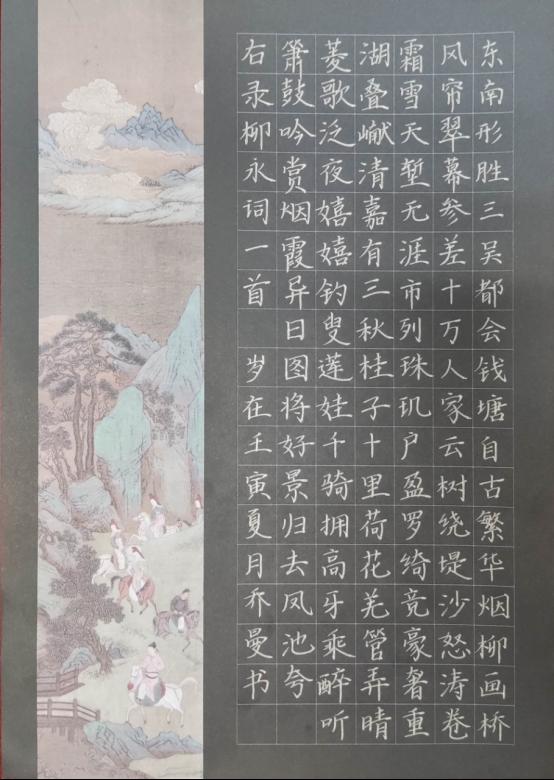 东南形胜三吴都会钱塘自古繁华烟柳画桥
风帘翠幕参差十万人家云树绕堤沙怒涛卷
霜雪天堑无涯市列珠玑户盈罗绮竞豪奢重
湖叠𪩘清嘉有三秋桂子十里荷花羌管弄晴
菱歌泛夜嬉嬉钓叟莲娃千骑拥高牙乘醉听
箫鼓吟赏烟霞异日图将好景归去凤池夸
右录柳永词一首 岁在壬寅夏月乔曼书